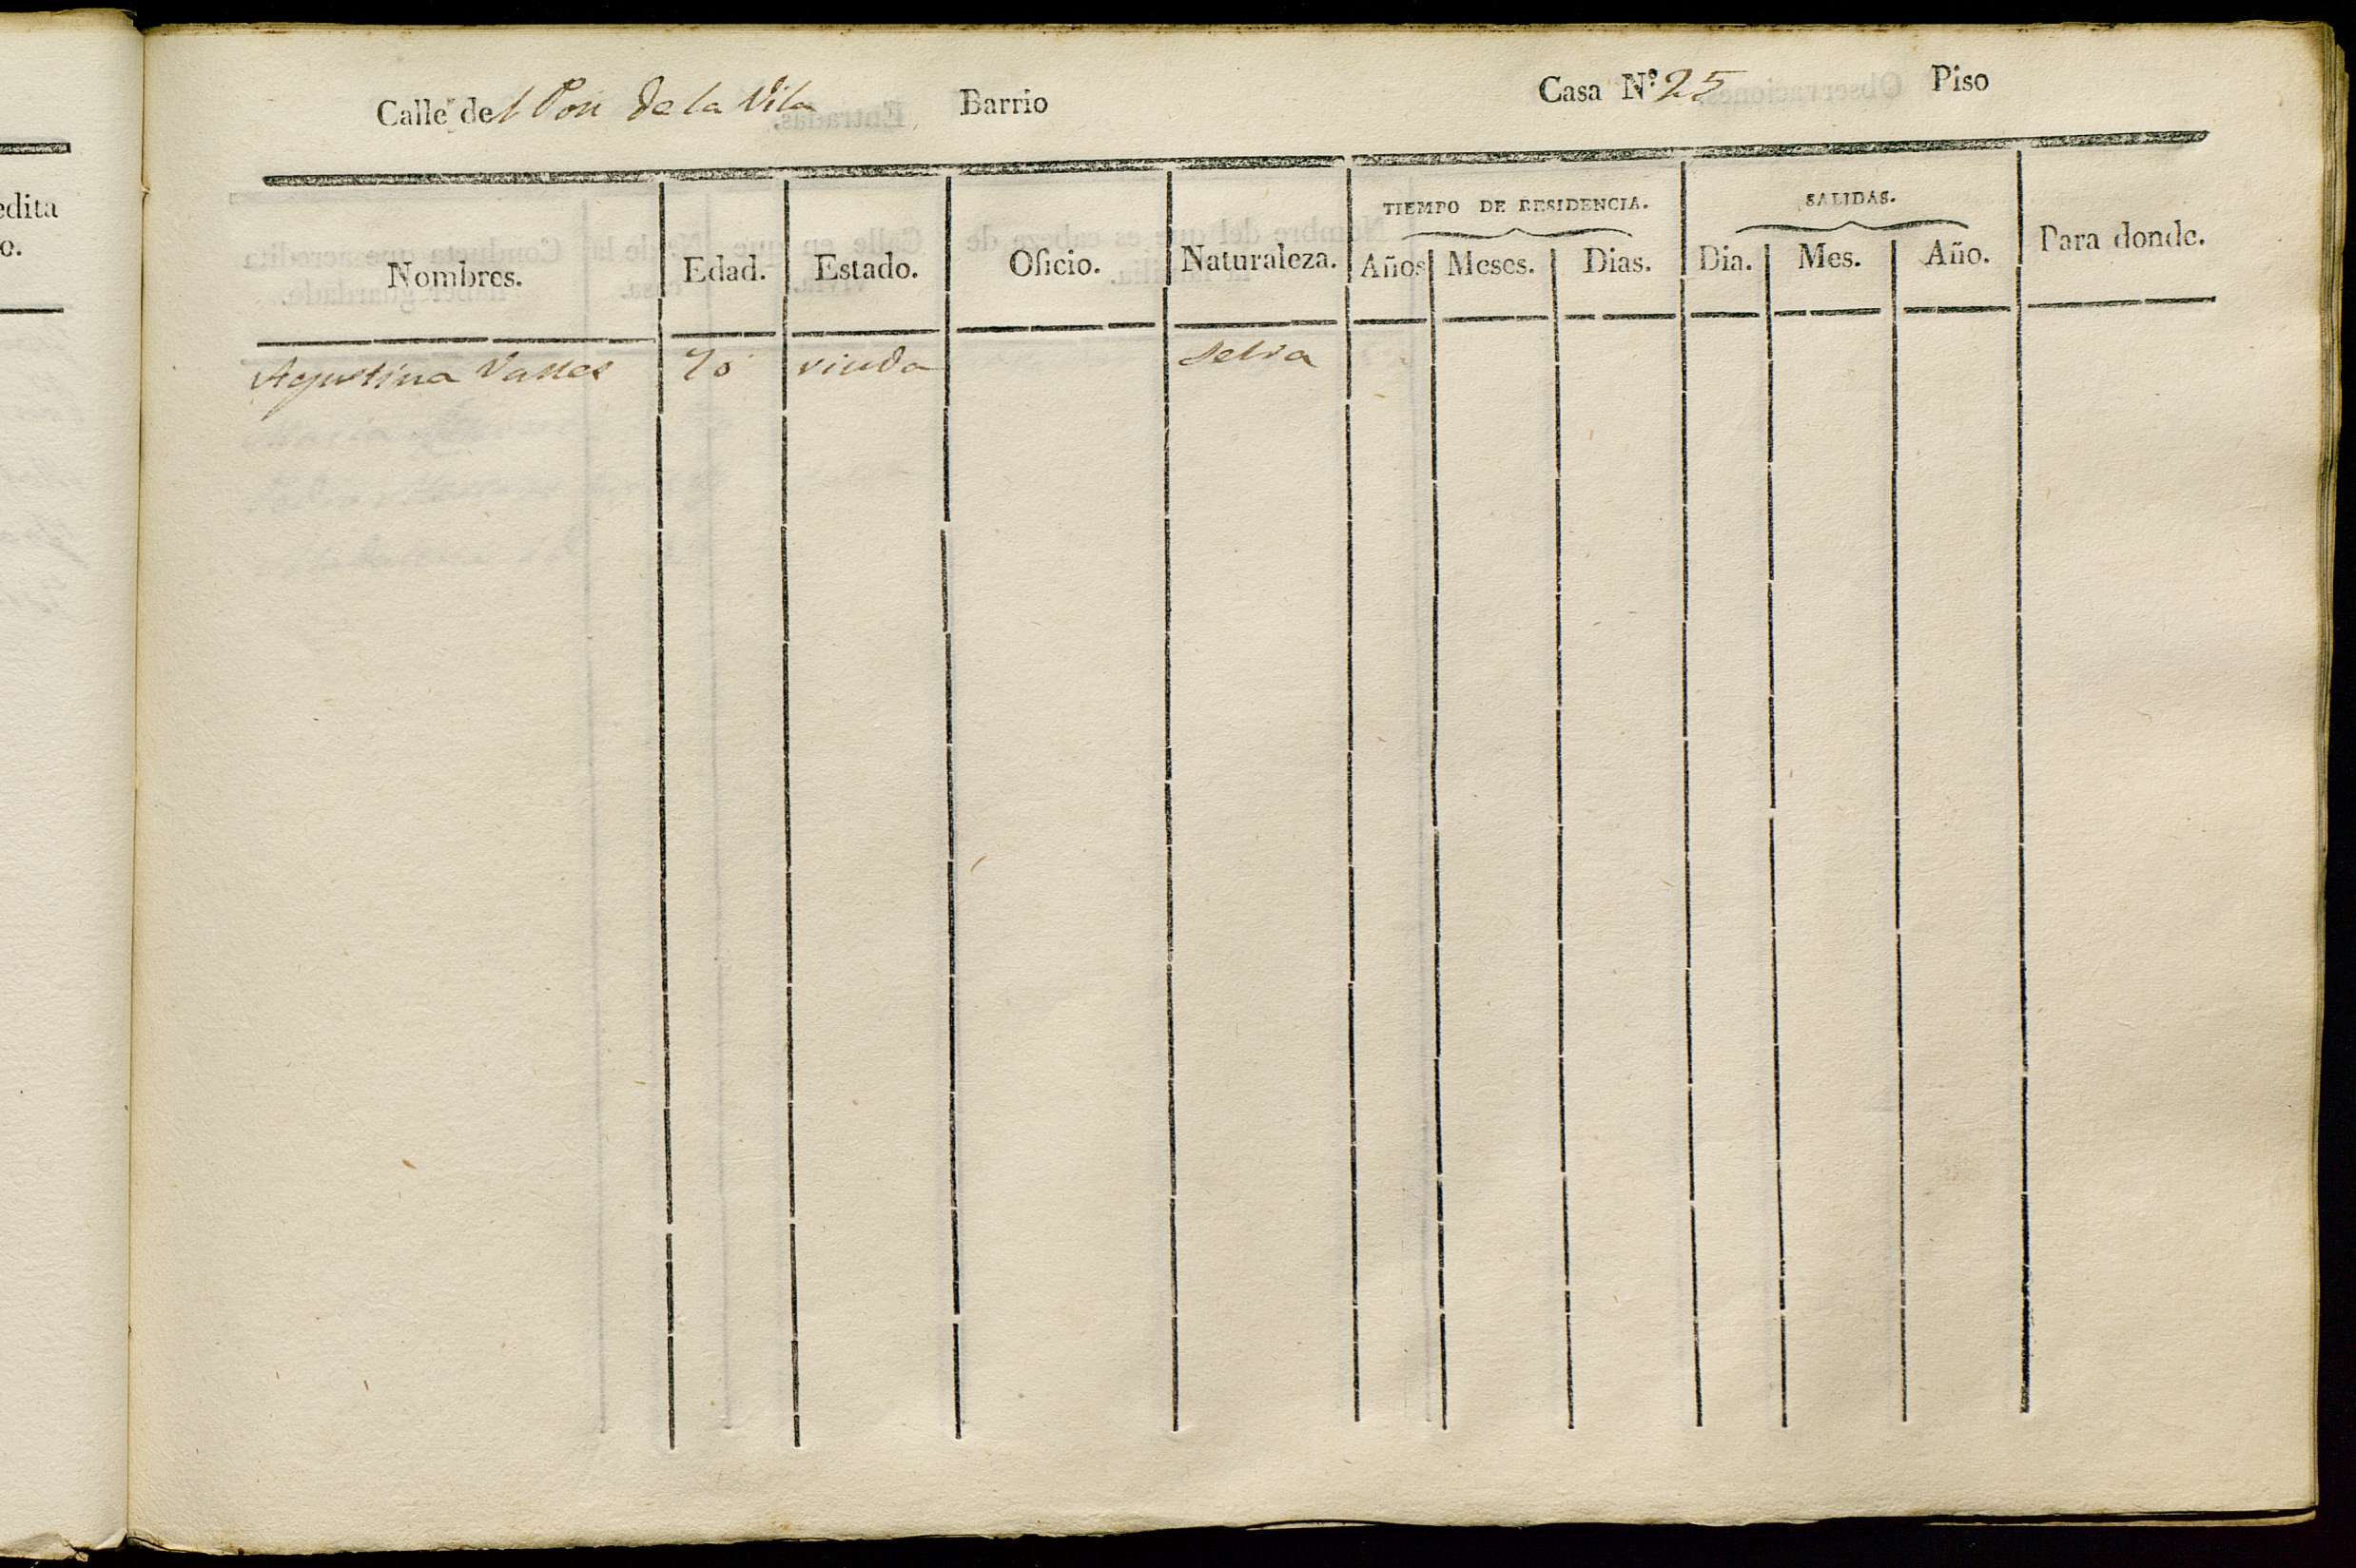 edita
o.
Calle del Pou de la Vila Barrio Casa N.º 25 Piso
TIEMPO DE RESIDENCIA. SALIDAS.
Nombres. Edad. Estado. Oficio. Naturaleza. Años Meses. Dias. Dia. Mes. Año. Para donde.
Agustina Valles 70 viuda Selva